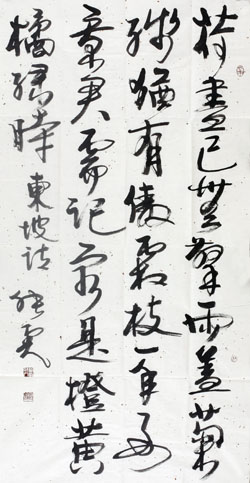 荷盡已無擎雨蓋菊
殘猶有傲霜枝一年好
景君需記最是橙黄
橘綠時東坡诗